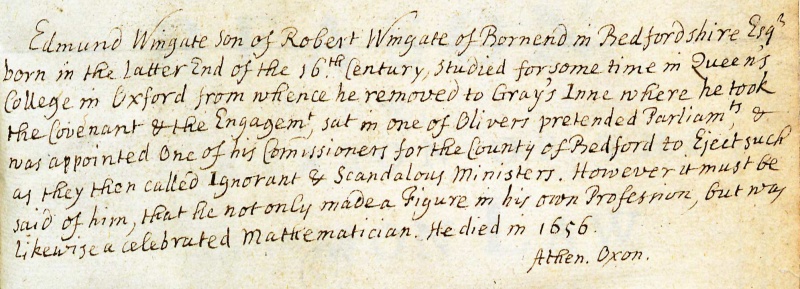 Edmund Wingate Son of Robert Wingate of Bornend in Bedfordshire Esqr
born in the Latter End of the 16.th Century, Studied for some time in Queen's
College in Oxford from whence he removed to Gray's Inne where he took
the Covenant & the Engagemt, sat in one of Olivers pretended Parliamts, &
was appointed One of his Comissioners for the County of Bedford to Eject such
as they then called Ignorant & Scandalous Ministers. However it must be
said of him, that he not only made a Figure in his own Profession, but was
likewise a celebrated Mathematician. He died in 1656.
Athen. Oxon.